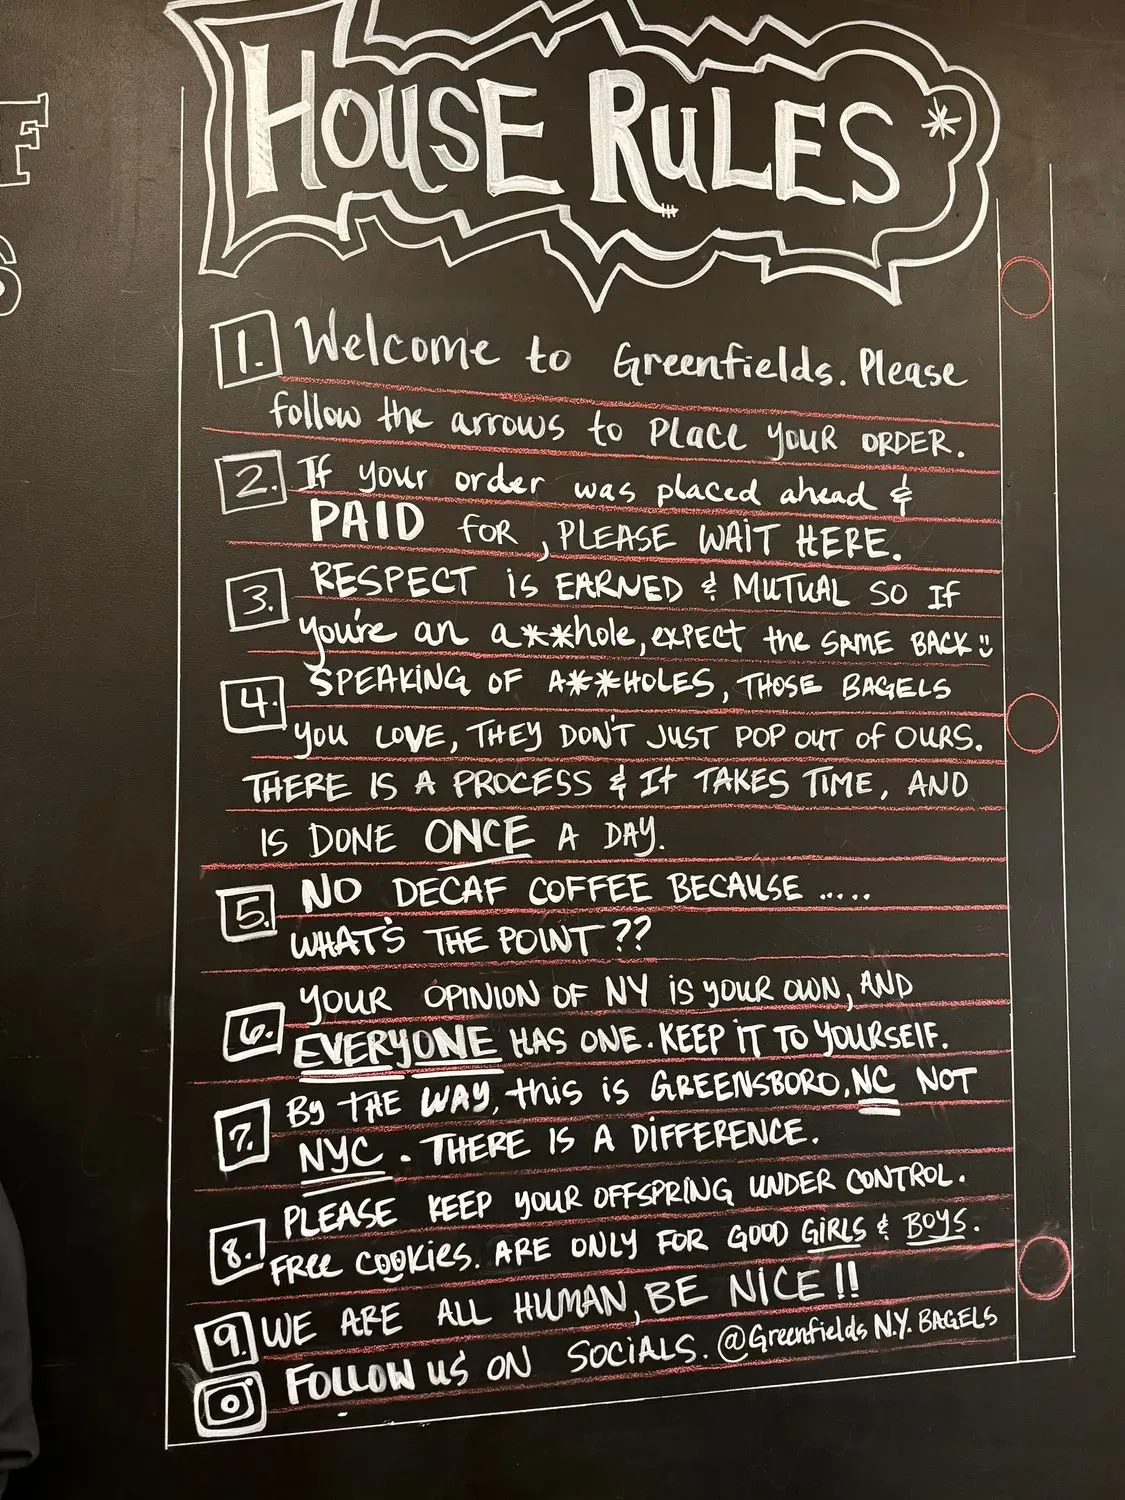 HOUSE RULES *
1. Welcome to Greenfields. Please
follow the arrows to PLACE YOUR ORDER.
2. If your order was placed ahead &
PAID FOR, PLEASE WAIT HERE.
3. RESPECT is EARNED & MUTUAL SO IF
you're an a**hole, EXPECT the SAME BACK :)
4. SPEAKING OF A**HOLES, THOSE BAGELS
you LOVE, THEY DON'T JUST POP OUT OF OURS.
THERE IS A PROCESS & It TAKES TIME, AND
IS DONE ONCE A DAY.
5. NO DECAF COFFEE BECAUSE .....
WHAT'S THE POINT??
6. YOUR OPINION OF NY IS YOUR OWN, AND
EVERYONE HAS ONE. KEEP IT TO YOURSELF.
7. By THE WAY, this is GREENSBORO, NC NOT
NYC. THERE IS A DIFFERENCE.
8. PLEASE KEEP YOUR OFFSPRING UNDER CONTROL.
FREE COOKIES. ARE ONLY FOR GOOD GIRLS & BOYS.
9. WE ARE ALL HUMAN, BE NICE!!
FOLLOW US ON SOCIALS. @Greenfields N.Y. BAGELS
F
S